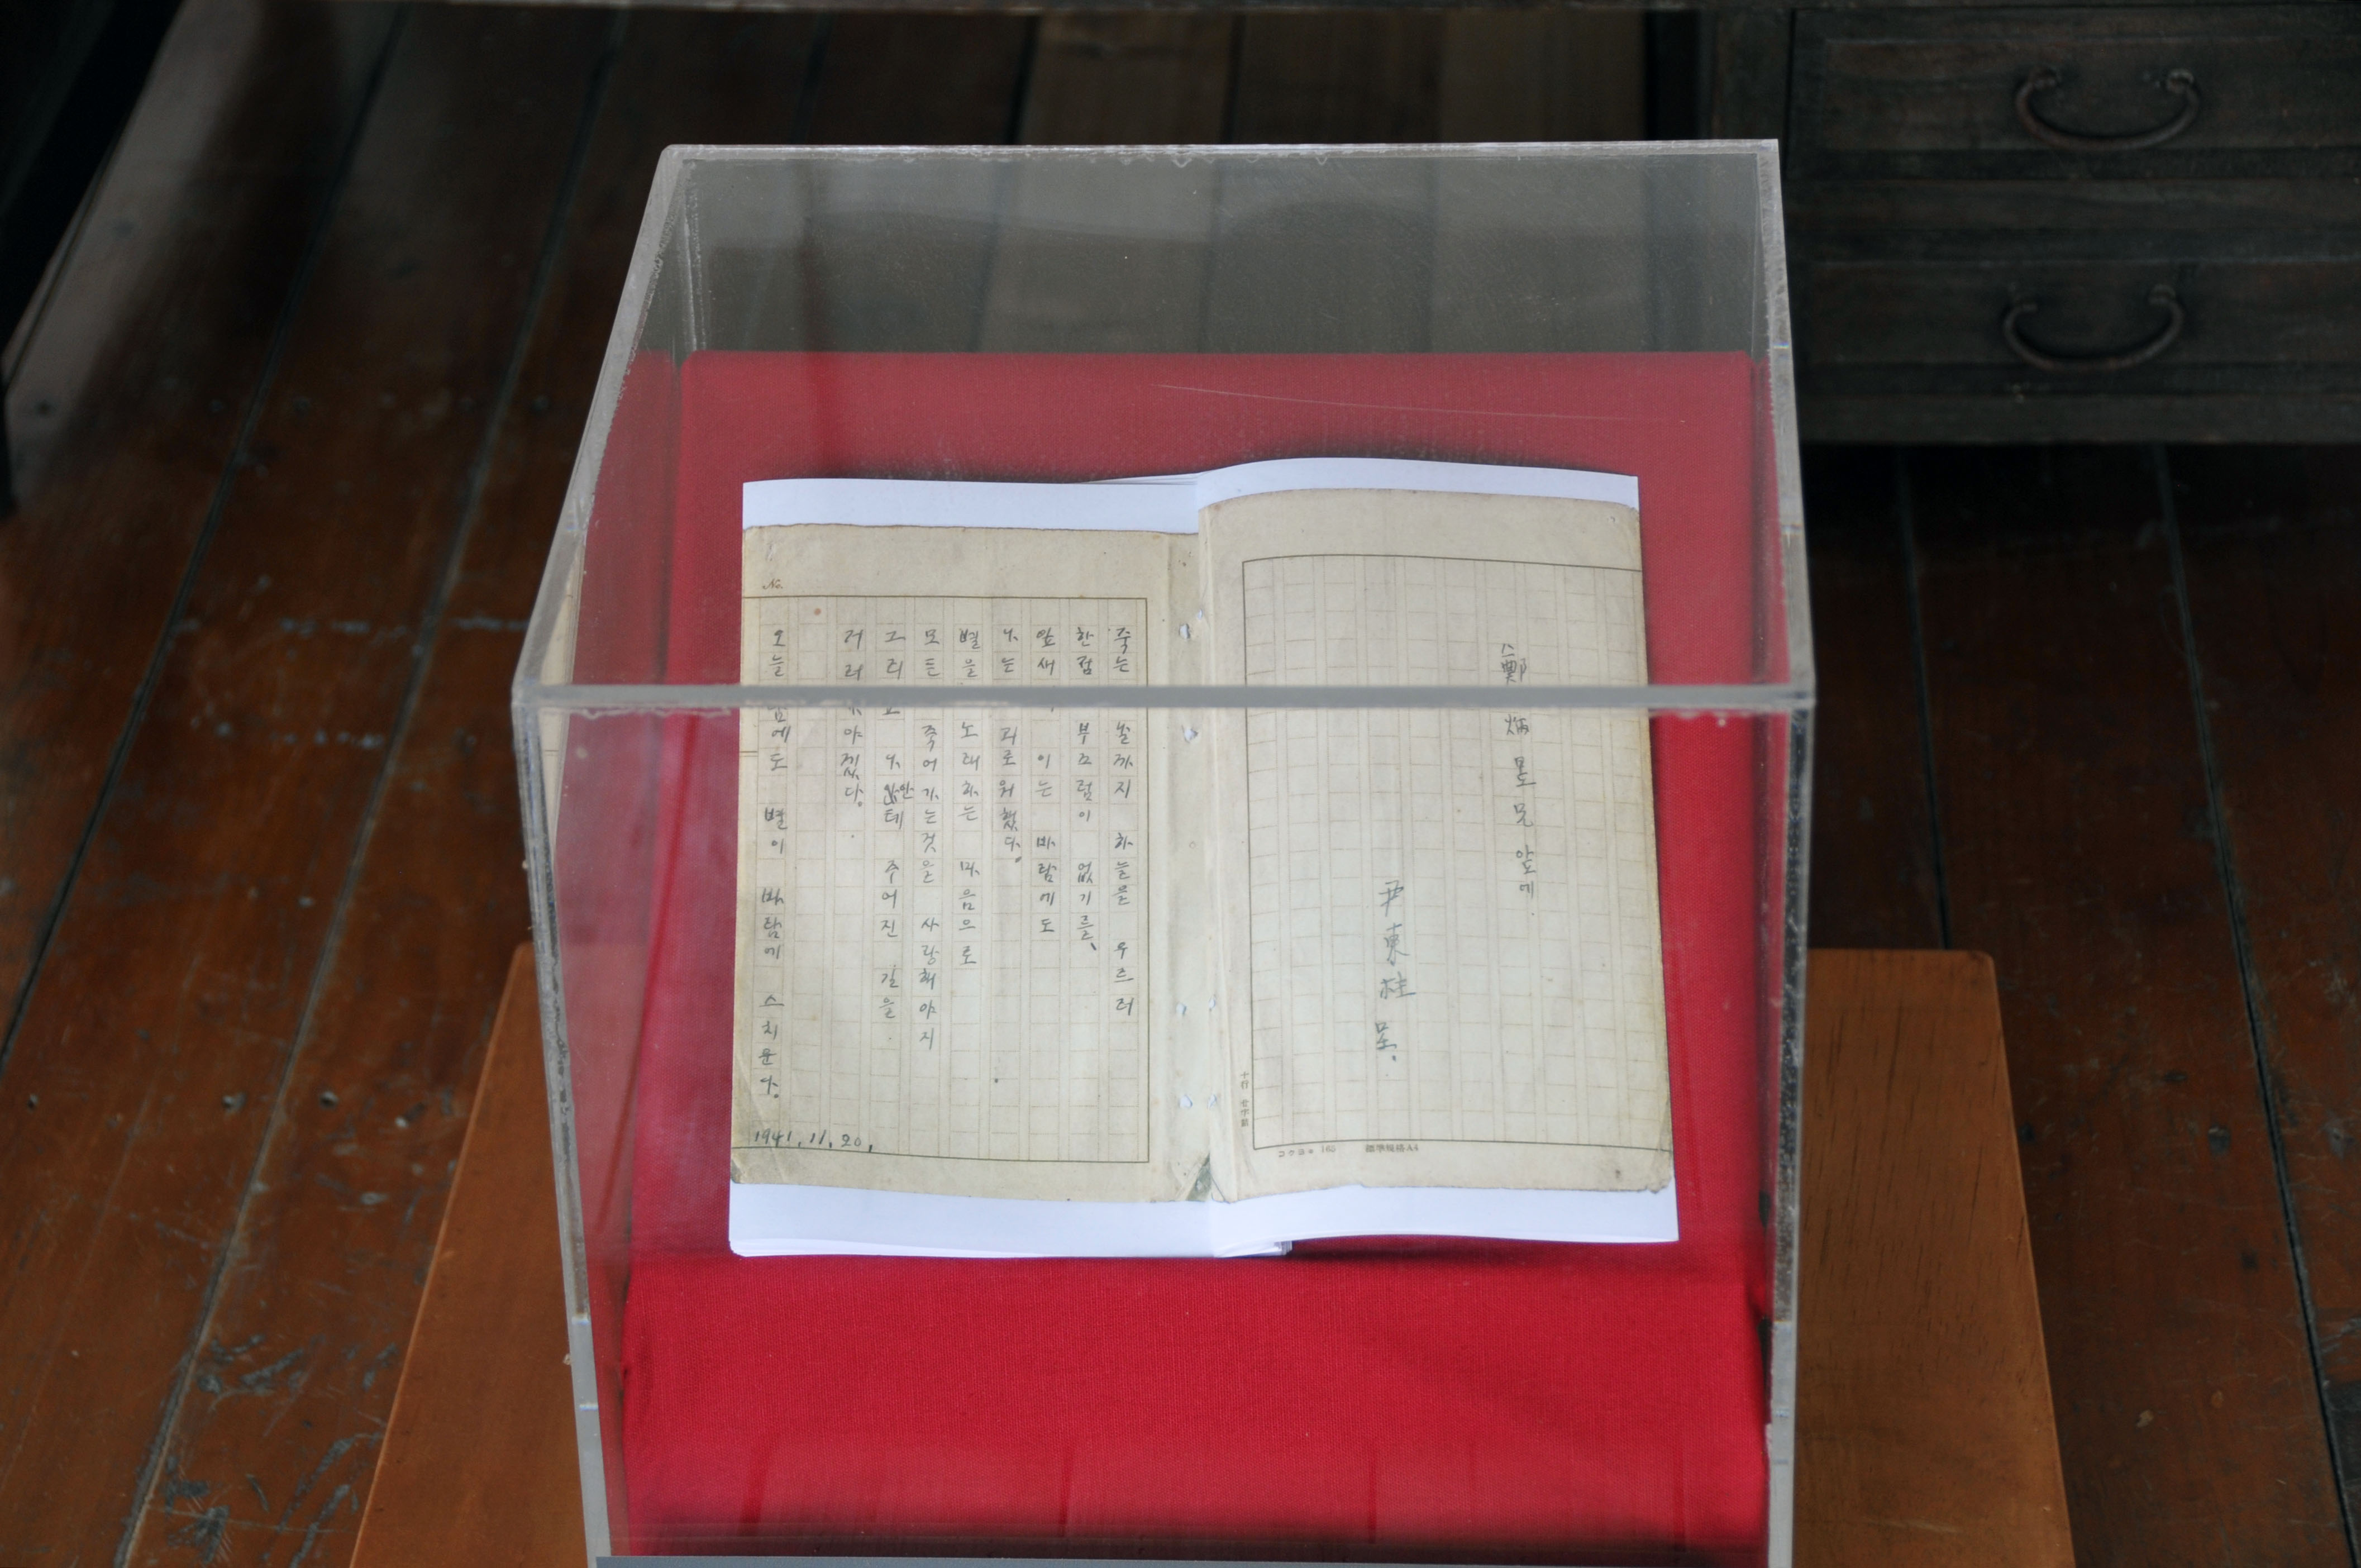 鄭炳昱兄 앞에
尹東柱 呈.
죽는 날까지 하늘을 우르러
한점 부끄럼이 없기를,
잎새에 이는 바람에도
나는 괴로워했다.
별을 노래하는 마음으로
모든 죽어가는것을 사랑해야지
그리고 나안테 주어진 길을
거러가야겠다.
오늘밤에도 별이 바람에 스치운다.
1941. 11. 20.
No.
標準規格A4